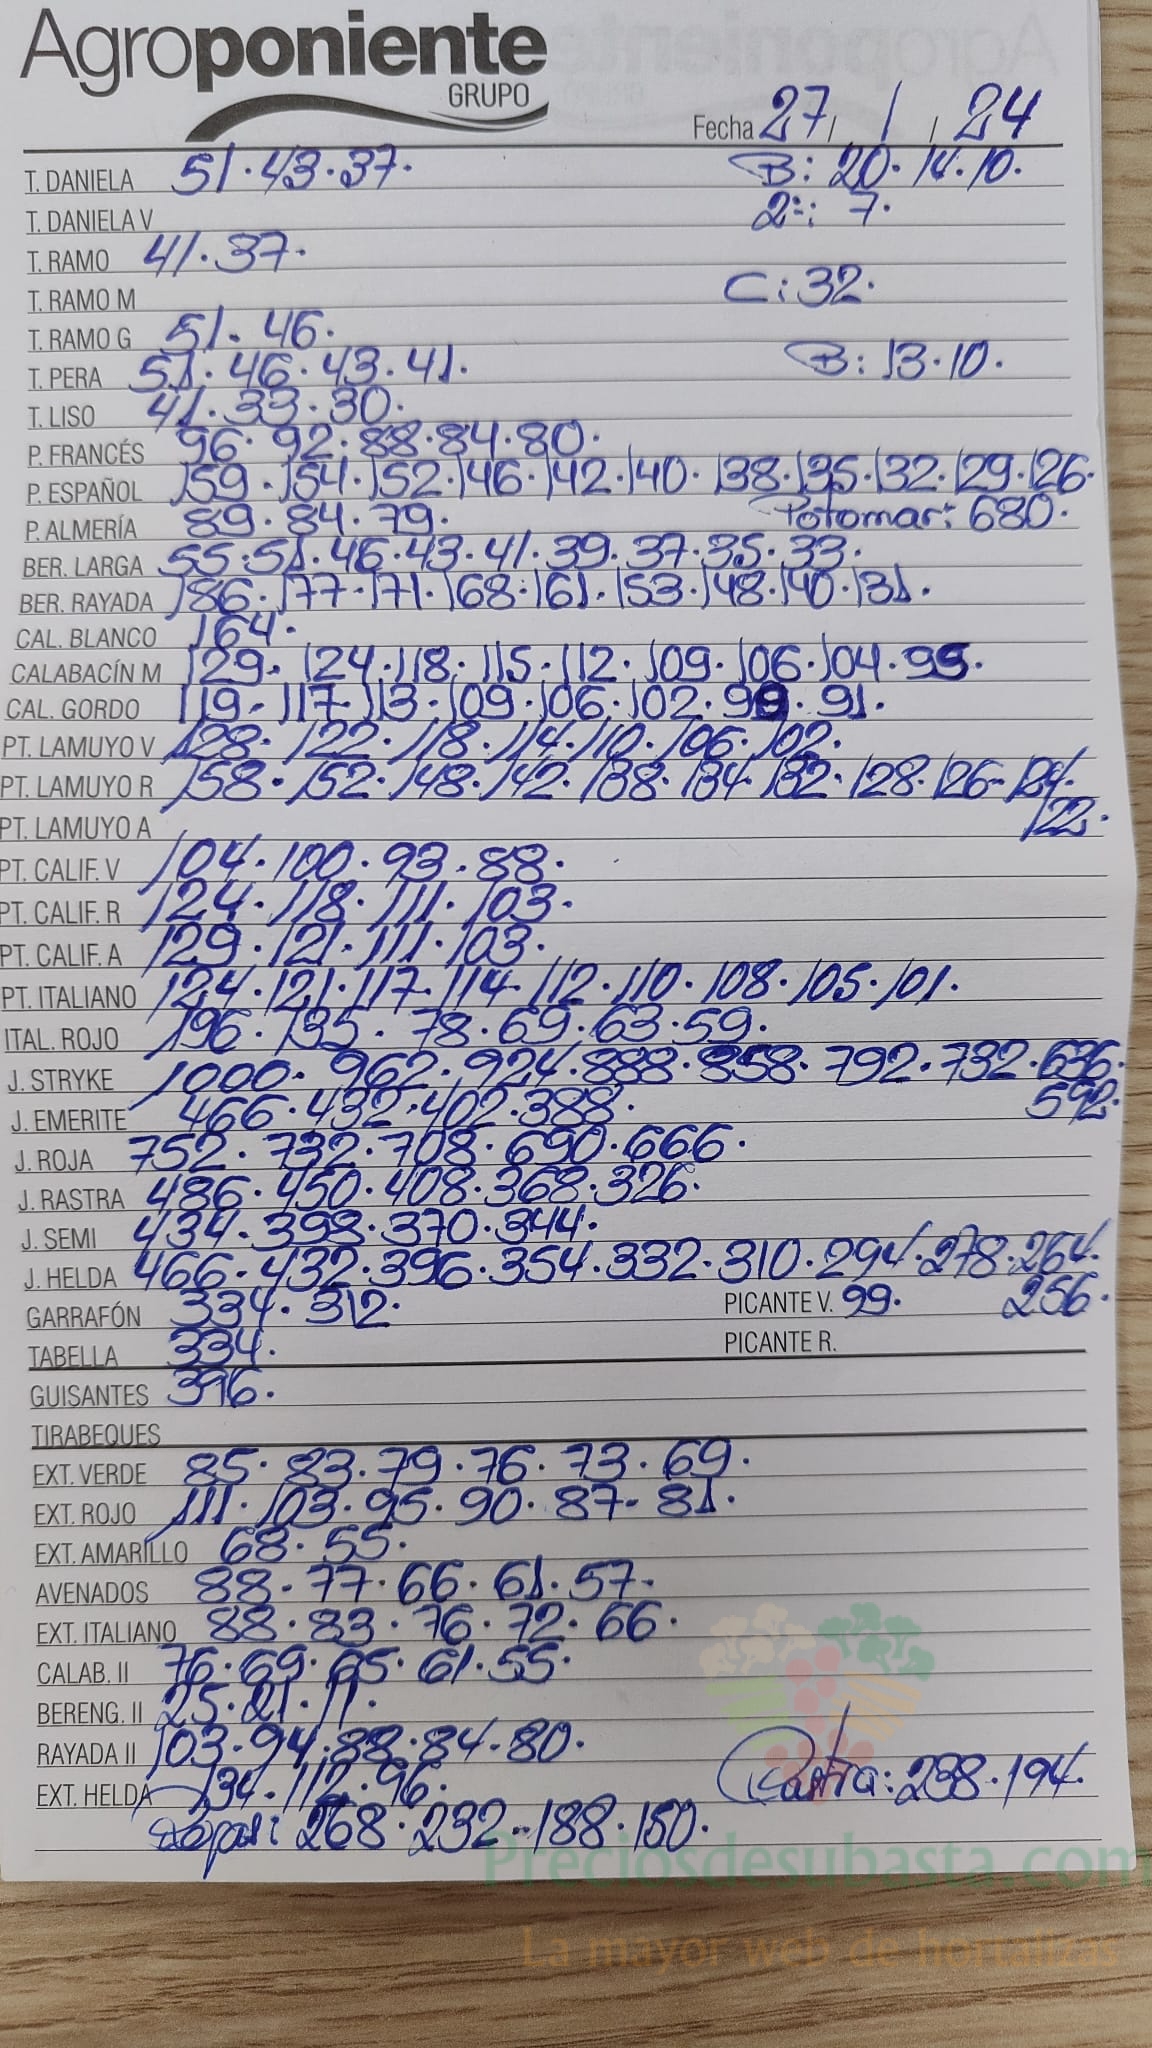 Agroponiente
GRUPO
Fecha 27 / 1 / 24
T. DANIELA 51·43·37· B: 20·14·10·
T. DANIELA V 2ª: 7·
T. RAMO 41·37·
T. RAMO M C: 32·
T. RAMO G 51·46·
T. PERA 51·46·43·41· B: 13·10·
T. LISO 41·33·30·
P. FRANCÉS 96·92·88·84·80·
P. ESPAÑOL 159·154·152·146·142·140·138·135·132·129·126·
P. ALMERÍA 89·84·79· Potomar: 680·
BER. LARGA 55·51·46·43·41·39·37·35·33·
BER. RAYADA 186·177·171·168·161·153·148·140·131·
CAL. BLANCO 164·
CALABACÍN M 129·124·118·115·112·109·106·104·99·
CAL. GORDO 119·117·113·109·106·102·99·91·
PT. LAMUYO V 128·122·118·114·110·106·102·
PT. LAMUYO R 158·152·148·142·138·134·132·128·126·124·
PT. LAMUYO A 122·
PT. CALIF. V 104·100·93·88·
PT. CALIF. R 124·118·111·103·
PT. CALIF. A 129·121·111·103·
PT. ITALIANO 124·121·117·114·112·110·108·105·101·
ITAL. ROJO 196·135·78·69·63·59·
J. STRYKE 1000·962·924·888·858·792·732·636·
J. EMERITE 466·432·402·388· 592·
J. ROJA 752·732·708·690·666·
J. RASTRA 486·450·408·368·326·
J. SEMI 434·398·370·344·
J. HELDA 466·432·396·354·332·310·294·278·264·
GARRAFÓN 334·312· PICANTE V. 99· 256·
TABELLA 334· PICANTE R.
GUISANTES 396·
TIRABEQUES
EXT. VERDE 85·83·79·76·73·69·
EXT. ROJO 111·103·95·90·87·81·
EXT. AMARILLO 68·55·
AVENADOS 88·77·66·61·57·
EXT. ITALIANO 88·83·76·72·66·
CALAB. II 76·69·65·61·55·
BERENG. II 25·21·11·
RAYADA II 103·94·88·84·80·
EXT. HELDA 134·112·96· Rastra: 238·194·
268·232·188·150·
Preciosdesubasta.com
La mayor web de hortalizas